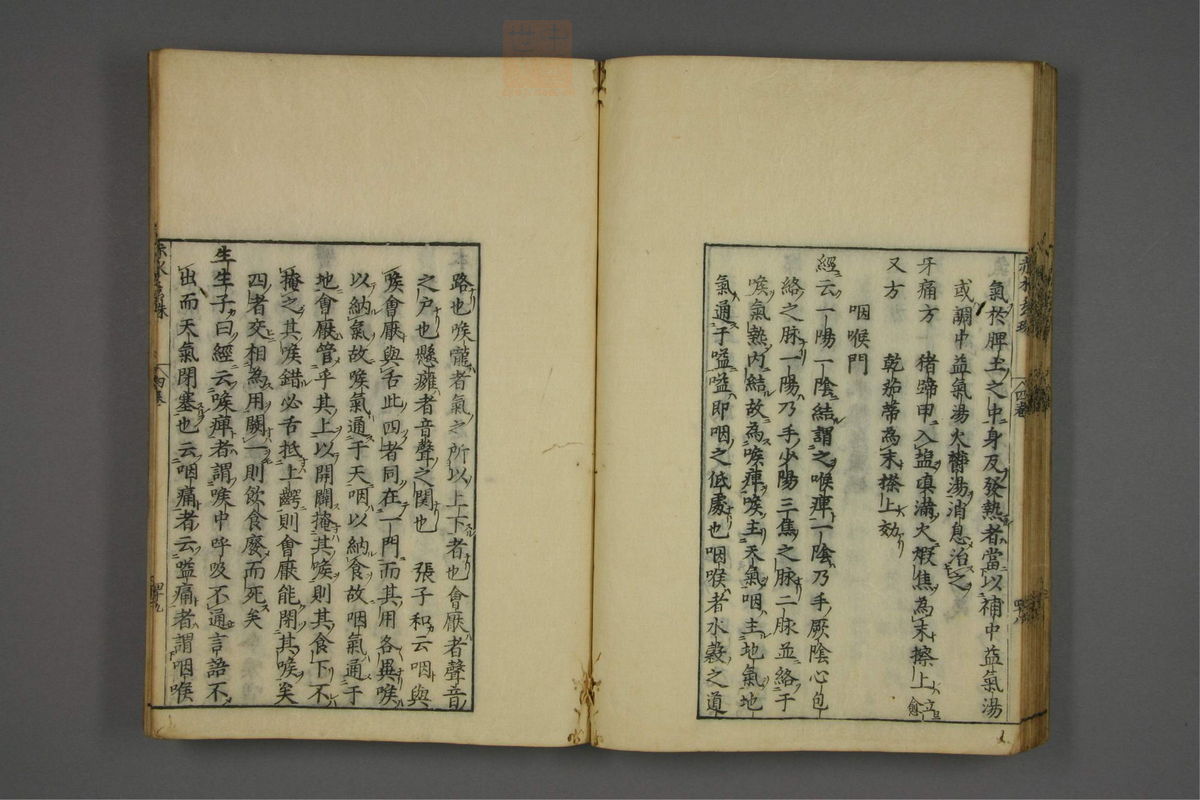 氣於脾土之中身及發熱者當以補中益氣湯
或調中益氣湯火鬱湯消息治之
牙痛方 猪蹄甲入塩填滿火煆焦為末擦上立愈
又方 乾茄蒂為末搽上効
咽喉門
經云一陽一陰結謂之喉痺一陰乃手厥陰心包
絡之脉一陽乃手少陽三焦之脉二脉並絡于
喉氣熱内結故為喉痺喉主天氣咽主地氣地
氣通于嗌嗌即咽之低處也咽喉者水穀之道
路也喉嚨者氣之所以上下者也會厭者聲音
之户也懸癰者音聲之関也 張子和云咽與
喉會厭與舌此四者同在一門而其用各異喉
以納氣故喉氣通于天咽以納食故咽氣通于
地會厭管乎其上以開關掩其喉則其食下不
掩之其喉錯必舌抵上齶則會厭能閉其喉矣
四者交相為用闕一則飲食廢而死矣
生生子曰經云喉痺者謂喉中呼吸不通言語不
出而天氣閉塞也云咽痛者云嗌痛者謂咽喉
四卷
四十九
四卷
四十八